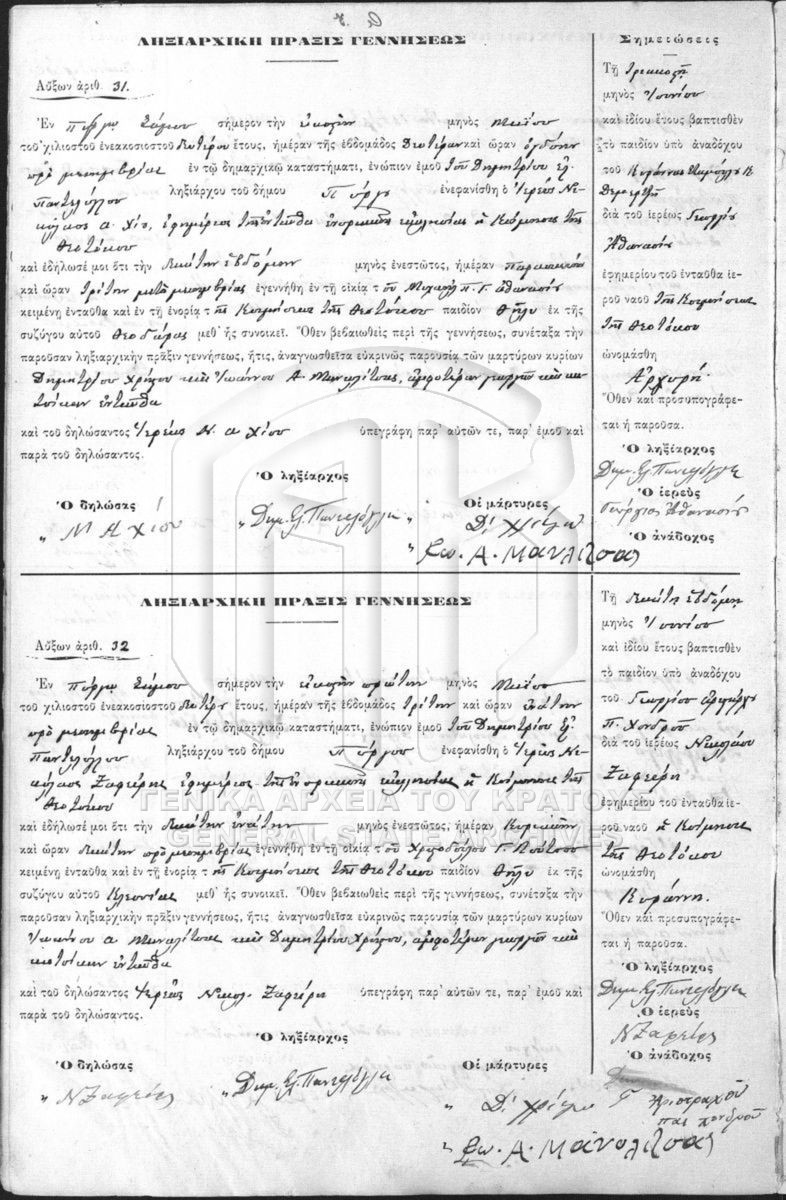 ΛΗΞΙΑΡΧΙΚΗ ΠΡΑΞΙΣ ΓΕΝΝΗΣΕΩΣ
Αὔξων ἀριθ. 31.
Ἐν Πύργῳ Σάμου σήμερον τὴν εἰκοστὴν μηνὸς Μαΐου
τοῦ χιλιοστοῦ ἐνεακοσιοστοῦ δευτέρου ἔτους, ἡμέραν τῆς ἑβδομάδος Δευτέραν καὶ ὥραν ὀγδόην
πρὸ μεσημβρίας ἐν τῷ δημαρχικῷ καταστήματι, ἐνώπιον ἐμοῦ τοῦ Δημητρίου Ελ.
Παντελόγλου ληξιάρχου τοῦ δήμου Πύργου ἐνεφανίσθη ὁ Ἱερεὺς Νι-
κόλαος Α. Χίου, ἐφημέριος τῆς ἐνταῦθα ἐνοριακῆς ἐκκλησίας ἡ Κοίμησις τῆς
Θεοτόκου
καὶ ἐδήλωσέ μοι ὅτι τὴν δεκάτην ἑβδόμην μηνὸς ἐνεστῶτος, ἡμέραν Παρασκευὴν
καὶ ὥραν τρίτην μετὰ μεσημβρίας ἐγεννήθη ἐν τῇ οἰκίᾳ τοῦ Μιχαὴλ Π. Γ. Ἀθανασίου
κειμένῃ ἐνταῦθα καὶ ἐν τῇ ἐνορίᾳ τῆς Κοιμήσεως τῆς Θεοτόκου παιδίον θῆλυ ἐκ τῆς
συζύγου αὐτοῦ Θεοδώρας μεθ᾽ ἧς συνοικεῖ. Ὅθεν βεβαιωθεὶς περὶ τῆς γεννήσεως, συνέταξα τὴν
παροῦσαν ληξιαρχικὴν πρᾶξιν γεννήσεως, ἥτις, ἀναγνωσθεῖσα εὐκρινῶς παρουσίᾳ τῶν μαρτύρων κυρίων
Δημητρίου Χρήστου καὶ Ἰωάννου Α. Μανωλίτσας, ἀμφοτέρων γεωργῶν καὶ κα-
τοίκων ἐνταῦθα
καὶ τοῦ δηλώσαντος Ἱερέως Ν. Α. Χίου ὑπεγράφη παρ᾽ αὐτῶν τε, παρ᾽ ἐμοῦ καὶ
παρὰ τοῦ δηλώσαντος.
Ὁ ληξίαρχος
Ὁ δηλώσας
Οἱ μάρτυρες
„ Ν Α Χίου „ Δημ. Ελ. Παντελόγλου „ Δ.
„ Ιω. Α. Μανλιτσας
Σημειώσεις
Τῇ τριακοστῇ
μηνὸς Ἰουνίου
καὶ ἰδίου ἔτους βαπτισθὲν
τὸ παιδίον ὑπὸ ἀναδόχου
τοῦ Κυράννας Κ.
διὰ τοῦ ἱερέως Γεωργίου
Ἀθανασίου
ἐφημερίου τοῦ ἐνταῦθα ἱε-
ροῦ ναοῦ τῆς Κοιμήσεως
τῆς Θεοτόκου
ὠνομάσθη
Ἀργυρή.
Ὅθεν καὶ προσυπογράφε-
ται ἡ παροῦσα.
Ὁ ληξίαρχος
Δημ. Ελ. Παντελόγλου
Ὁ ἱερεὺς
Γεώργιος Ἀθανασίου
Ὁ ἀνάδοχος
ΛΗΞΙΑΡΧΙΚΗ ΠΡΑΞΙΣ ΓΕΝΝΗΣΕΩΣ
Αὔξων ἀριθ. 32
Ἐν Πύργῳ Σάμου σήμερον τὴν εἰκοστὴν πρώτην μηνὸς Μαΐου
τοῦ χιλιοστοῦ ἐνεακοσιοστοῦ δευτέρου ἔτους, ἡμέραν τῆς ἑβδομάδος Τρίτην καὶ ὥραν ἐνάτην
πρὸ μεσημβρίας ἐν τῷ δημαρχικῷ καταστήματι, ἐνώπιον ἐμοῦ τοῦ Δημητρίου Ελ.
Παντελόγλου ληξιάρχου τοῦ δήμου Πύργου ἐνεφανίσθη ὁ Ἱερεὺς Νι-
κόλαος Ζαφείρης ἐφημέριος τῆς ἐνοριακῆς ἐκκλησίας ἡ Κοίμησις τῆς
Θεοτόκου
καὶ ἐδήλωσέ μοι ὅτι τὴν δεκάτην ἐνάτην μηνὸς ἐνεστῶτος, ἡμέραν Κυριακὴν
καὶ ὥραν δεκάτην πρὸ μεσημβρίας ἐγεννήθη ἐν τῇ οἰκίᾳ τοῦ Χριστοδούλου Γ.
κειμένῃ ἐνταῦθα καὶ ἐν τῇ ἐνορίᾳ τῆς Κοιμήσεως τῆς Θεοτόκου παιδίον θῆλυ ἐκ τῆς
συζύγου αὐτοῦ μεθ᾽ ἧς συνοικεῖ. Ὅθεν βεβαιωθεὶς περὶ τῆς γεννήσεως, συνέταξα τὴν
παροῦσαν ληξιαρχικὴν πρᾶξιν γεννήσεως, ἥτις, ἀναγνωσθεῖσα εὐκρινῶς παρουσίᾳ τῶν μαρτύρων κυρίων
Ἰωάννου Α. Μανωλίτσας καὶ Δημητρίου Χρήστου, ἀμφοτέρων γεωργῶν καὶ
κατοίκων ἐνταῦθα
καὶ τοῦ δηλώσαντος Ἱερέως Νικολ. Ζαφείρη ὑπεγράφη παρ᾽ αὐτῶν τε, παρ᾽ ἐμοῦ καὶ
παρὰ τοῦ δηλώσαντος.
Ὁ ληξίαρχος
Ὁ δηλώσας
Οἱ μάρτυρες
„ Ν Ζαφείρης „ Δημ. Ελ. Παντελόγλου
„ Δ.
„ Ιω. Α. Μανολιτσας
Τῇ δεκάτῃ ἑβδόμῃ
μηνὸς Ἰουνίου
καὶ ἰδίου ἔτους βαπτισθὲν
τὸ παιδίον ὑπὸ ἀναδόχου
τοῦ Γεωργίου
Π. Χονδροῦ
διὰ τοῦ ἱερέως Νικολάου
Ζαφείρη
ἐφημερίου τοῦ ἐνταῦθα ἱε-
ροῦ ναοῦ ἡ Κοίμησις
τῆς Θεοτόκου
ὠνομάσθη
Κυράννη.
Ὅθεν καὶ προσυπογράφε-
ται ἡ παροῦσα.
Ὁ ληξίαρχος
Δημ. Ελ. Παντελόγλου
Ὁ ἱερεὺς
Ν Ζαφείρης
Ὁ ἀνάδοχος
ΓΕΝΙΚΑ ΑΡΧΕΙΑ ΤΟΥ ΚΡΑΤΟΥΣ
GENERAL STATE ARCHIVES